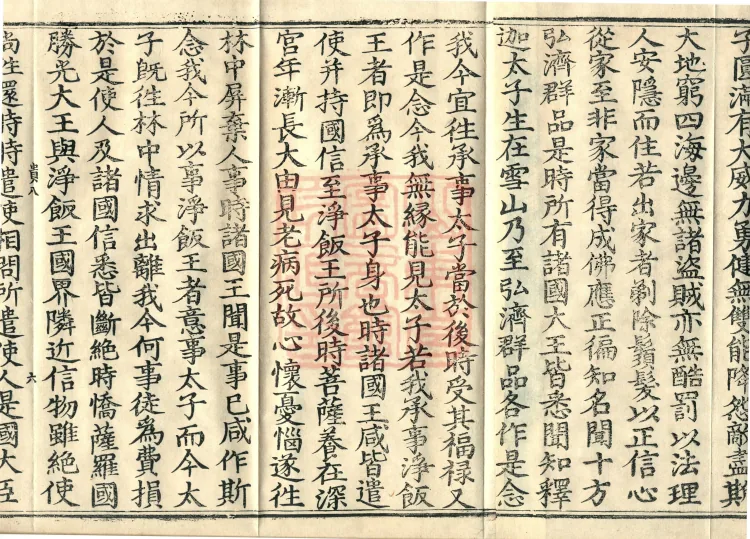 子圓滿有大威力勇健無雙能降怨敵盡斯
大地窮四海邊無諸盜賊亦無酷罰以法理
人安隱而住若出家者剃除鬚髮以正信心
從家至非家當得成佛應正徧知名聞十方
弘濟群品是時所有諸國大王皆悉聞知釋
迦太子生在雪山乃至弘濟群品各作是念
我今宜往承事太子當於後時受其福祿又
作是念今我無緣能見太子若我承事淨飯
王者即為承事太子身也時諸國王咸皆遣
使并持國信至淨飯王所後時菩薩養在深
宮年漸長大由見老病死故心懷憂惱遂往
林中屏棄人事時諸國王聞是事已咸作斯
念我今所以事淨飯王者意事太子而今太
子既往林中情求出離我今何事徒為費損
於是使人及諸國信悉皆斷絕時憍薩羅國
勝光大王與淨飯王國界隣近信物雖絕使
尚往還時時遣使相問所遣使人是國大臣
六